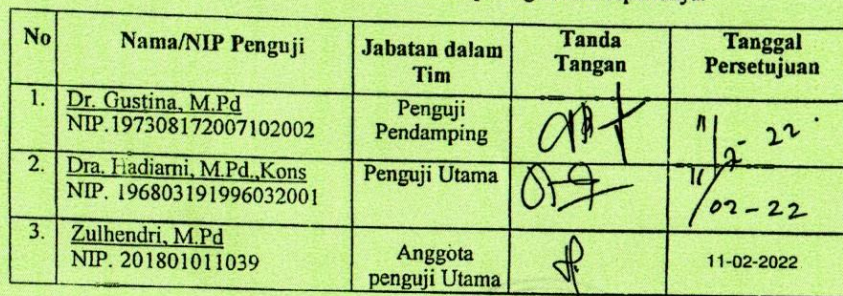 No Nama/NIP Penguji Jabatan dalam Tim Tanda Tangan Tanggal Persetujuan
1. Dr. Gustina, M.Pd
NIP.197308172007102002
Penguji
Pendamping
11/2-22
2. Dra. Hadiarni, M.Pd.,Kons
NIP. 196803191996032001
Penguji Utama
11/02-22
3. Zulhendri, M.Pd
NIP. 201801011039
Anggota
penguji Utama
11-02-2022